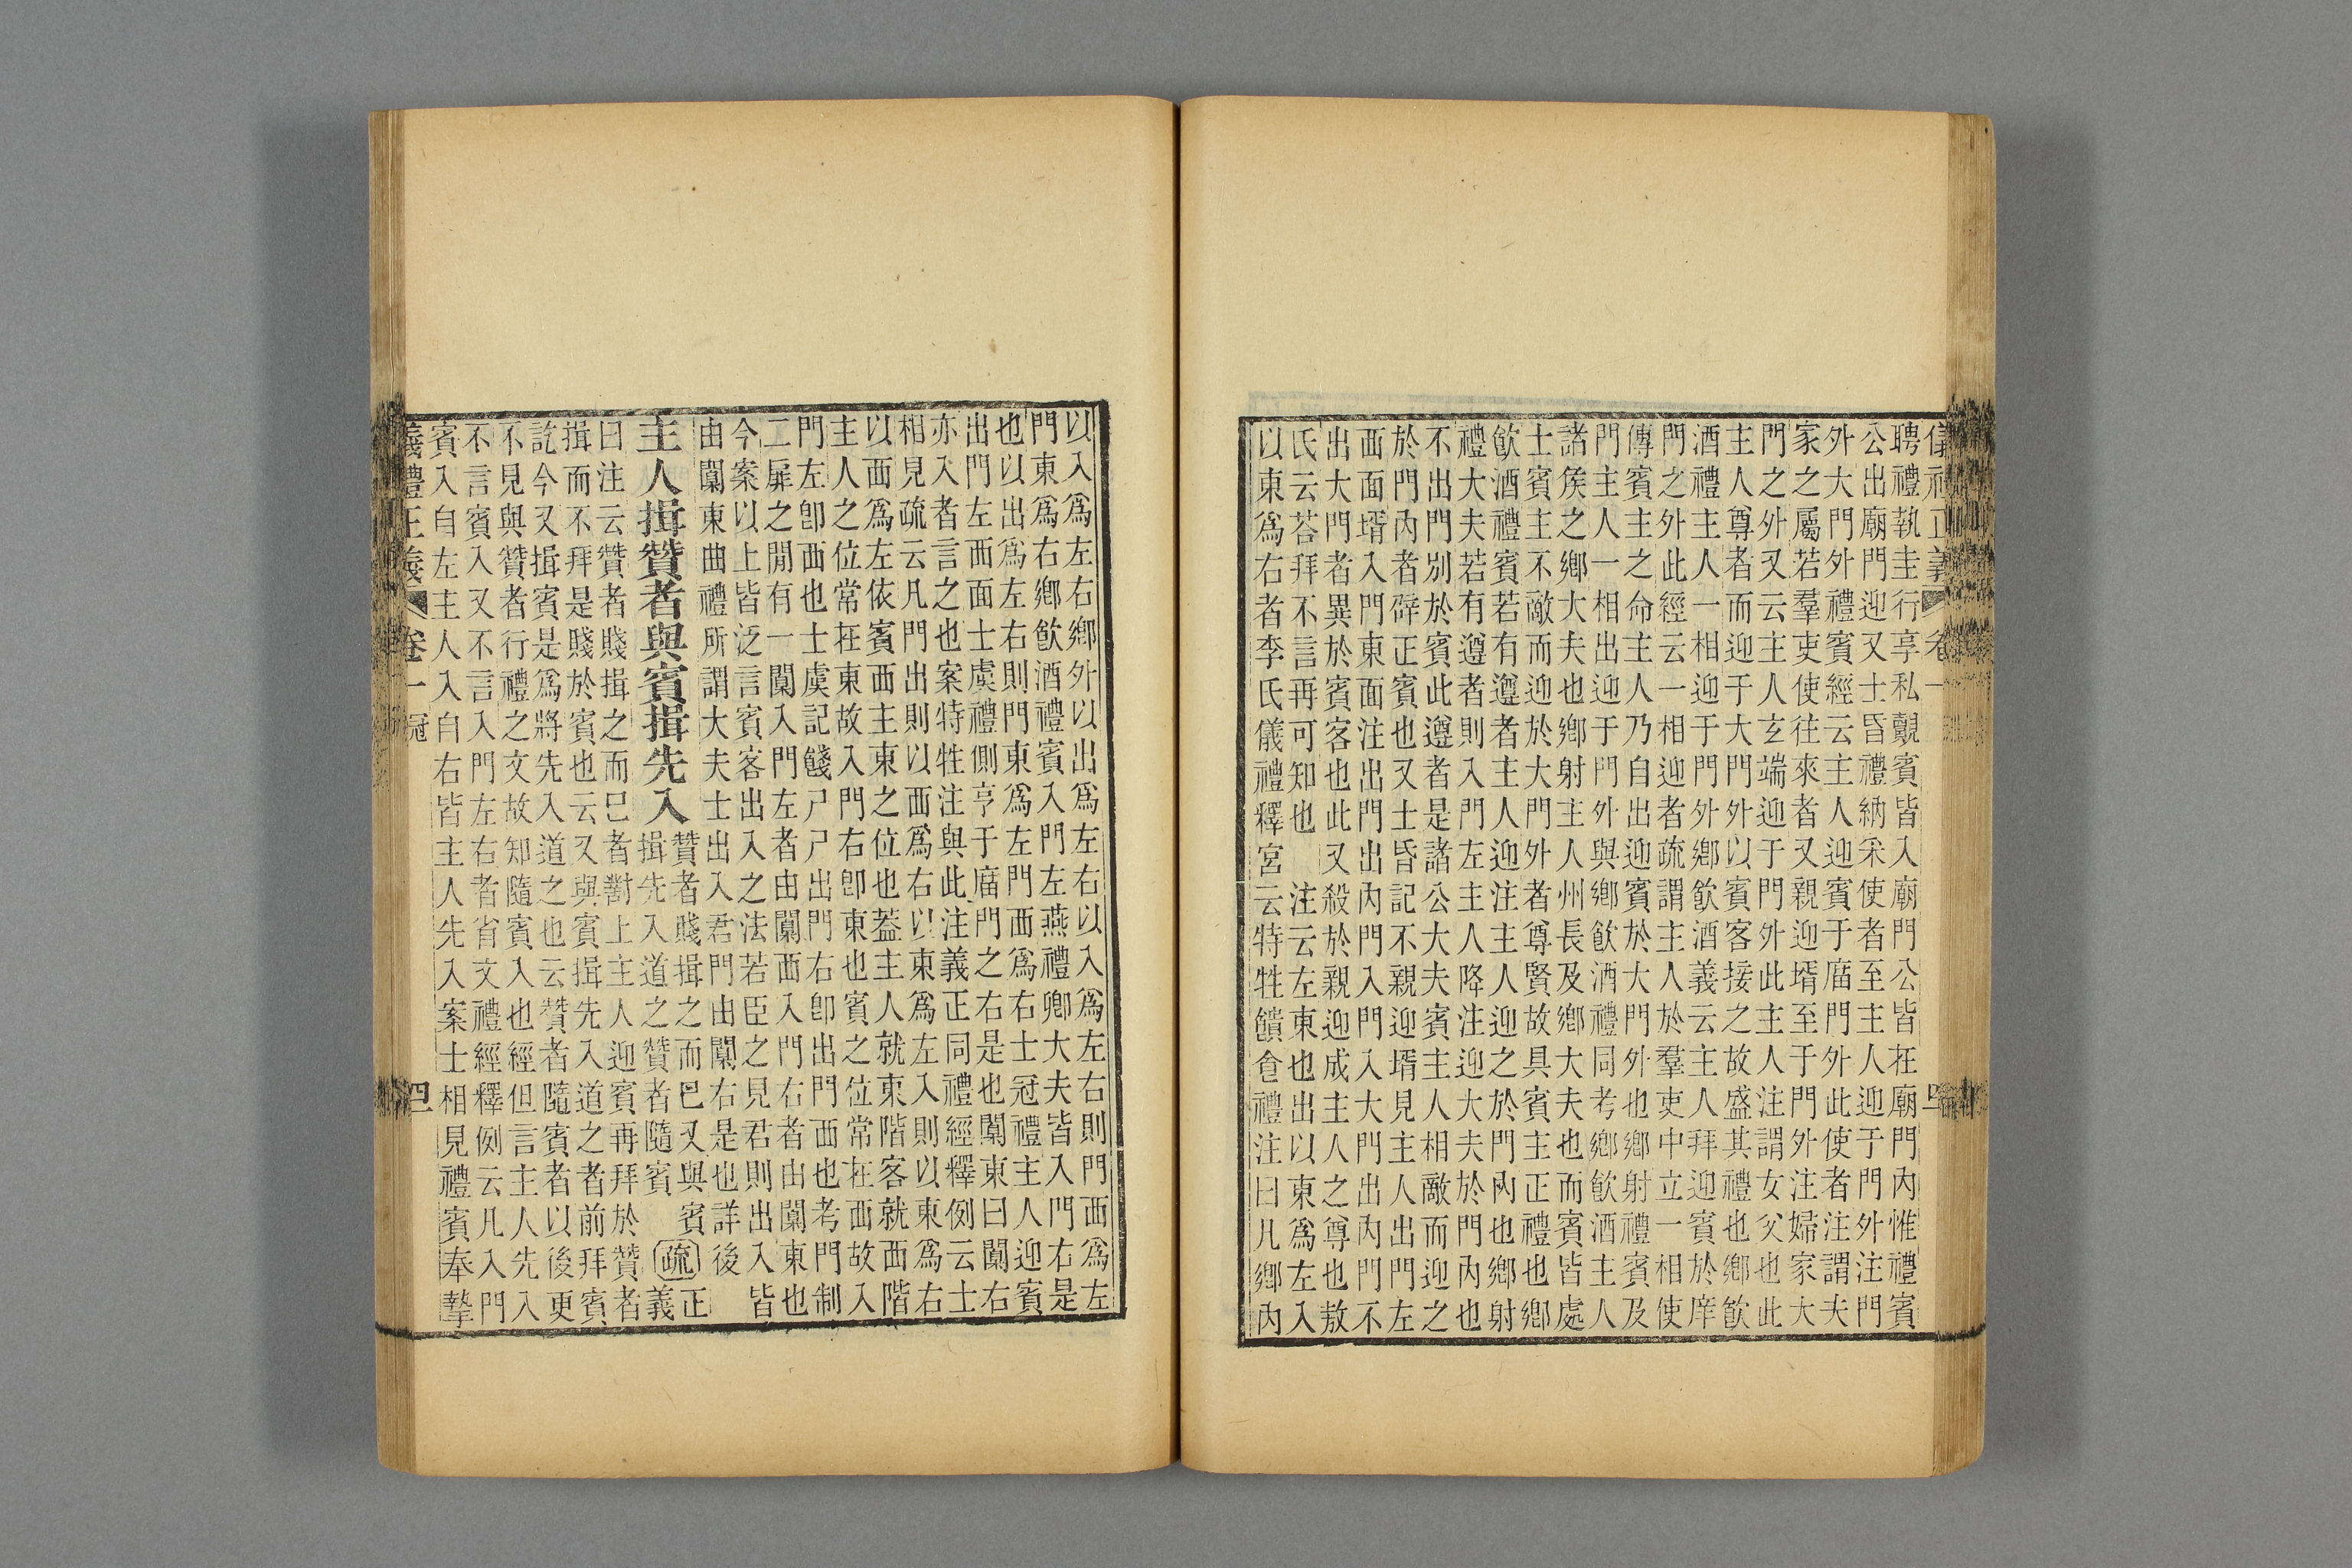 儀禮正義 卷一
聘禮執圭行享私覿賓皆入廟門公皆在廟門內惟禮賓
公出廟門迎又士昏禮納采使者至主人迎于門外注門
外大門外禮賓經云主人迎賓于廟門外此使者注謂夫
家之屬若羣吏使往來者又親迎壻至于門外注婦家大
門之外又云主人玄端迎于門外此主人注謂女父也此
主人尊者而迎于大門外以賓客接之故盛其禮也鄉飲
酒禮主人一相迎于門外鄉飲酒義云主人拜迎賓於庠
門之外此經云一相迎者疏謂主人於羣吏中立一相使
傳賓主之命主人乃自出迎賓於大門外也鄉射禮賓及
門主人一相出迎于門外與鄉飲酒禮同考鄉飲酒主人
諸侯之鄉大夫也鄉射主人州長及鄉大夫也而賓皆處
士賓主不敵而迎於大門外者尊賢故具賓主正禮也鄉
飲酒禮賓若有遵者主人迎注主人迎之於門內也鄉射
禮大夫若有遵者則入門左主人降注迎大夫於門內也
不出門別於賓此遵者是諸公大夫賓主人相敵而迎之
於門內者辟正賓也又士昏記不親迎壻見主人出門左
西面壻入門東面注出門出內門入門入大門出內門不
出大門者異於賓客也此又殺於親迎成主人之尊也敖
氏云荅拜不言再可知也　注云左東也出以東為左入
以東為右者李氏儀禮釋宮云特牲饋食禮注曰凡鄉內
以入為左右鄉外以出為左右以入為左右則門西為左
門東為右鄉飲酒禮賓入門左燕禮卿大夫皆入門右是
也以出為左右則門東為左門西為右士冠禮主人迎賓
出門左西面士虞禮側亨于廟門之右是也闑東曰闑右
亦入者言之也案特牲注與此注義正同禮經釋例云士
相見疏云凡門出則以西為右以東為左入則以東為右
以西為左依賓西主東之位也蓋主人就東階客就西階
主人之位常在東故入門右即東也賓之位常在西故入
門左即西也士虞記餞尸尸出門右即出門西也考門制
二扉之閒有一闑入門左者由闑西入門右者由闑東也
今案以上皆泛言賓客出入之法若臣之見君則出入皆
由闑東曲禮所謂大夫士出入君門由闑右是也詳後
主人揖贊者與賓揖先入
贊者賤揖之而已又與賓
揖先入道之贊者隨賓
疏
正
義
曰注云贊者賤揖之而已者對上主人迎賓再拜於贊者
揖而不拜是賤於賓也云又與賓揖先入道之者前拜賓
訖今又揖賓是為將先入道之也云贊者隨賓者以後更
不見與贊者行禮之文故知隨賓入也經但言主人先入
不言賓入又不言入門左右者省文禮經釋例云凡入門
賓入自左主人入自右皆主人先入案士相見禮賓奉摯
義禮正義 卷一 冠 四